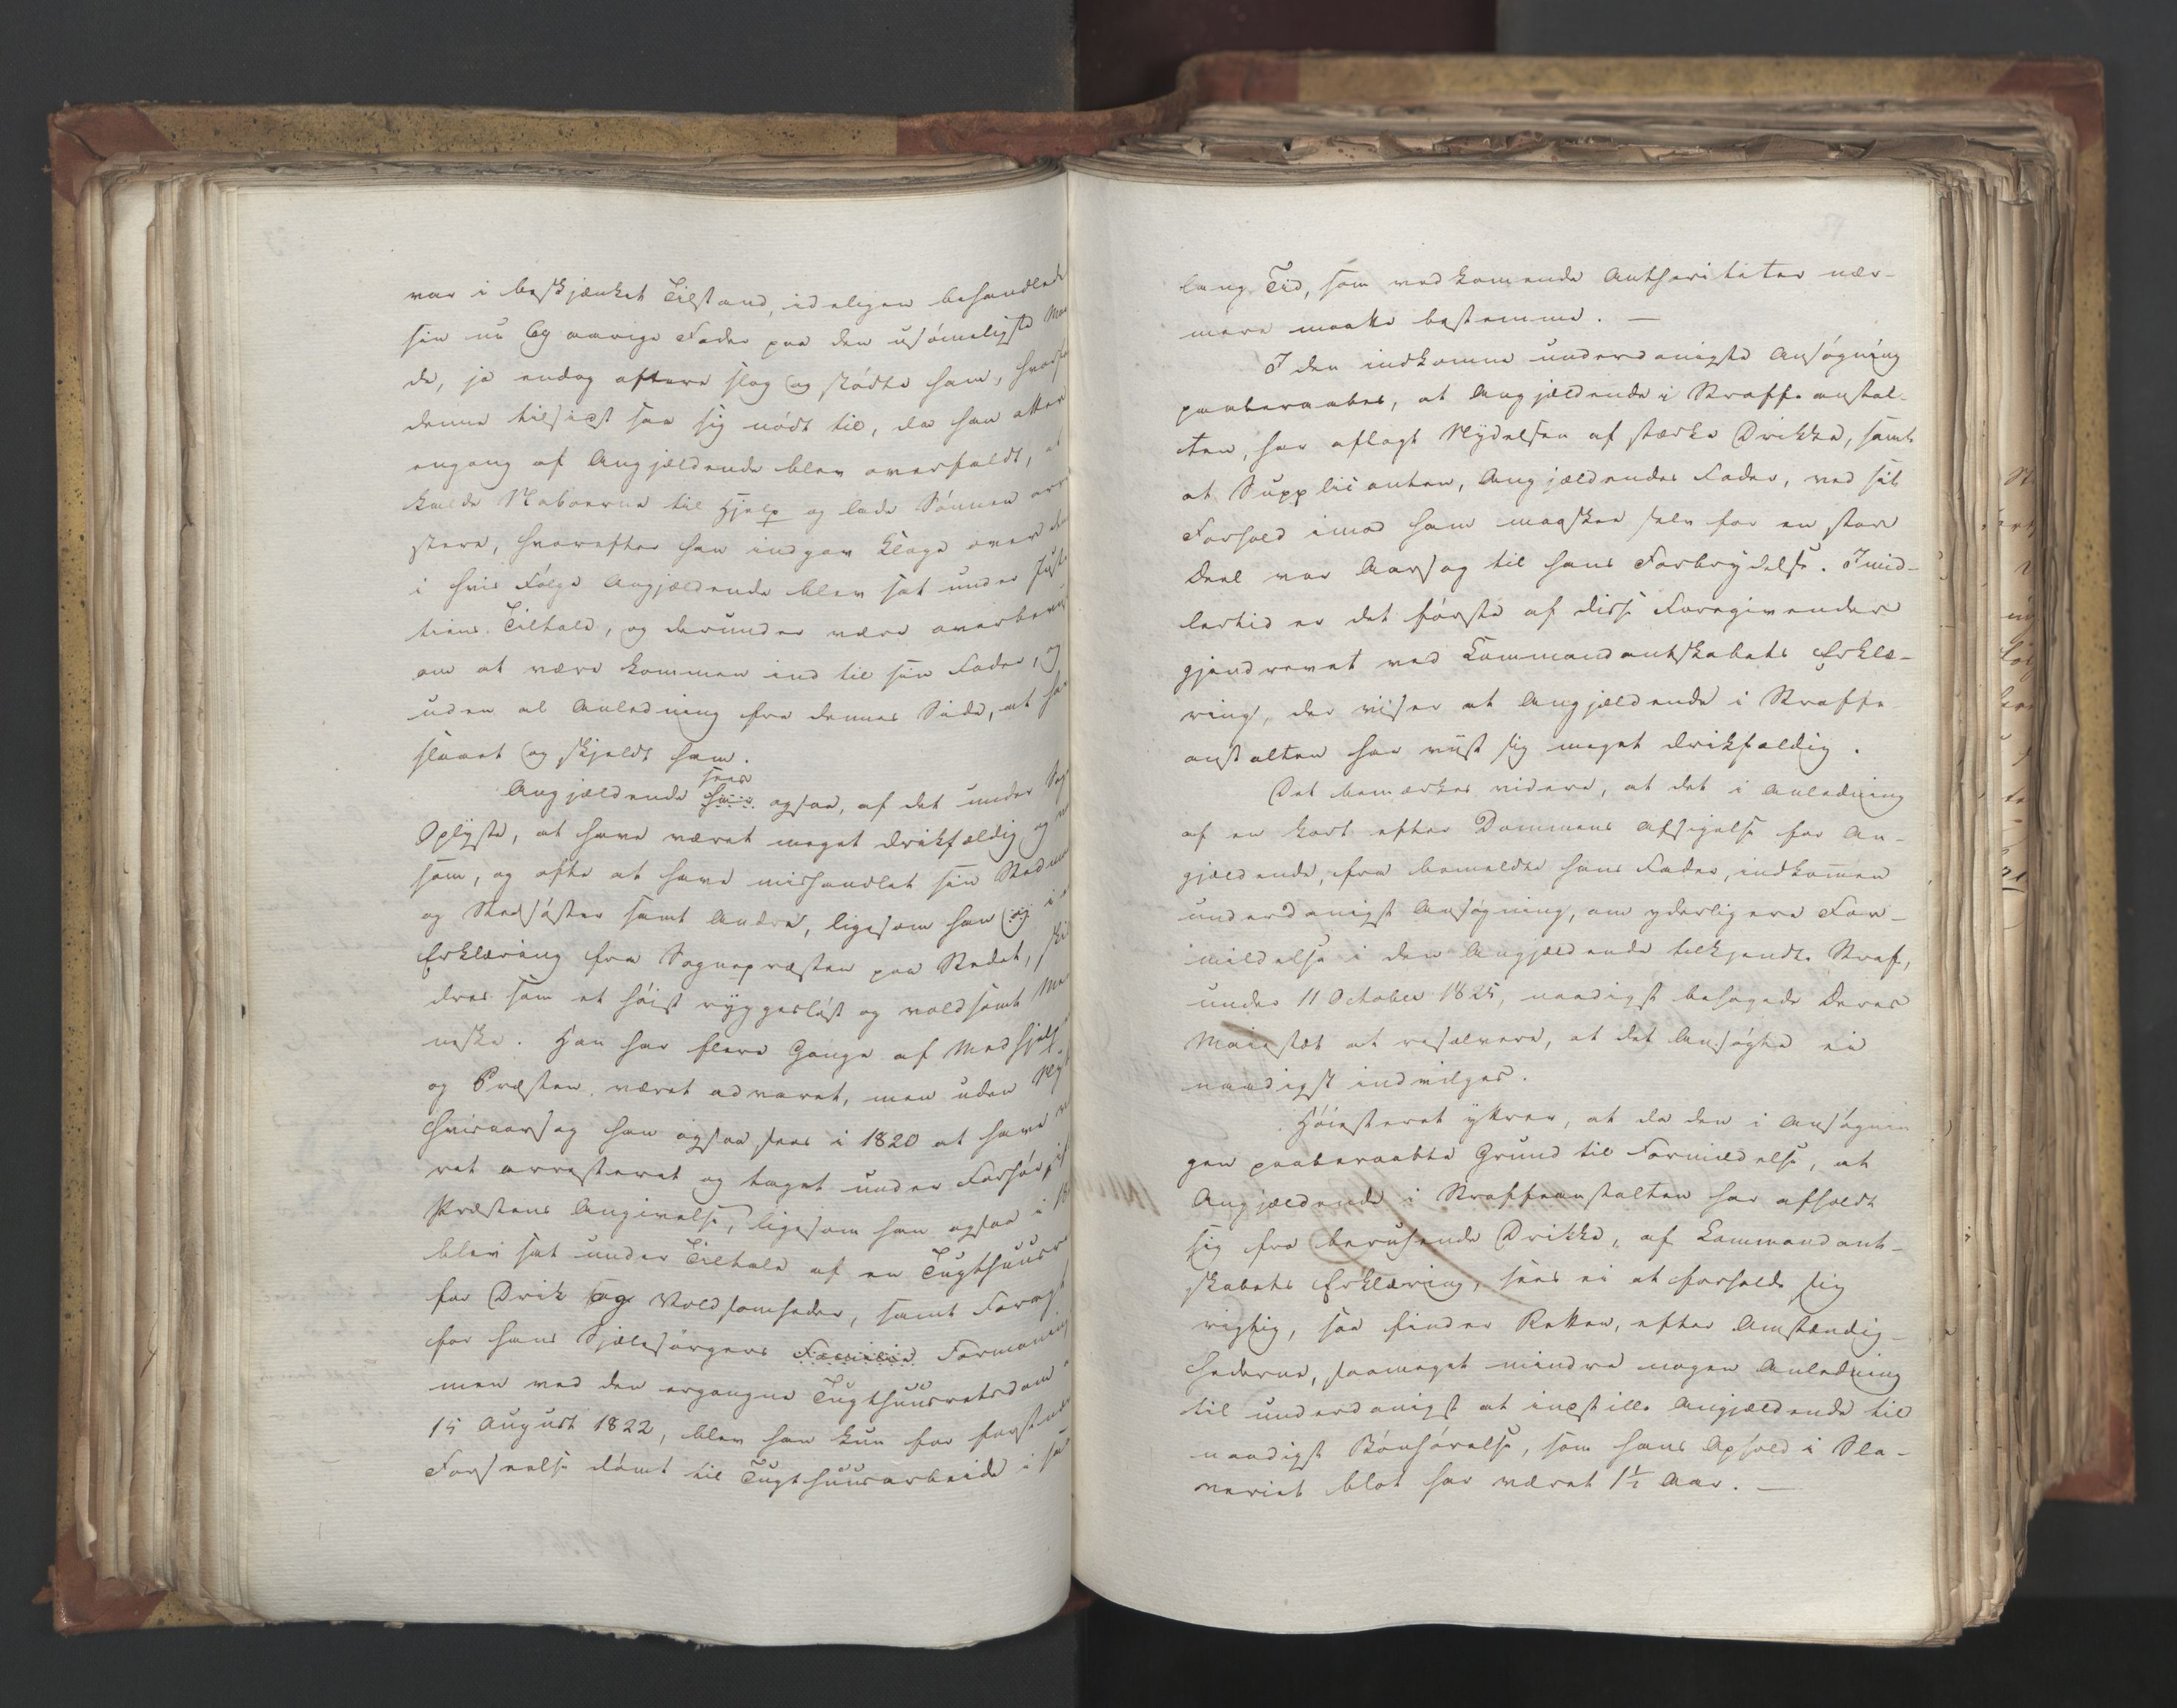 var i beskjænket Tilstand, ideligen behandlede
sin nu 69 aarige Fader paa den usømeligste Maa
de, ja endog oftere slog og stødte ham, hvorfor
denne tilsidst saa sig nødt til, da han atter
engang af Angjældende blev overfaldt, at
kalde Naboerne til Hjelp og lade Sønnen arre
stere, hvorefter han indgav Klage over den
i hvis Følge Angjældende blev sat under Justi
tiens Tiltale, og derunder være overbeviist
om at være kommen ind til sin Fader, og
uden al Anledning fra dennes Side, at have
slaaet og skjældt ham.
Angjældende sees
ogsaa, af det under Sagen
Oplyste, at have været meget drikfældig og
som, og ofte at have mishandlet sin Stedmoder
og Stedsøster samt Andre, ligesom han og i
Erklæring fra Sognepræsten paa Stedet, skil
dres som et høist ryggesløst og voldsomt Men
neske. Han har flere Gange af Medhjelp
og Præsten været advaret, men uden Nytte
hvisaarsag han ogsaa sees i 1820 at have væ
ret arresteret og taget under Forhør, paa
Præstens Angivelse, ligesom han ogsaa i
blev sat under Tiltale af en Tugthuusret
for Drik og Voldsomheder, samt Foragt
for hans Sjælesørgers Formaning
men ved den ergangne Tugthuusretsdom
15 August 1822, blev han kun for førstnævn
Forseelse dømt til Tugthuusarbeide i saa
lang Tid, som vedkomende Authoriteter nær-
mere maatte bestemme. —
I den indkomne underdanigste Ansøgning
paaberaabes, at Angjældende i Straffeanstal-
ten, har aflagt Nydelsen af stærke Drikke, samt
at Supplicanten, Angjældendes Fader, ved sit
Forhold imod ham maaskee selv for en stor
Deel var Aarsag til hans Forbrydelse. Imid-
lertid er det første af disse Foregivender
gjendrevet ved Commandantskabets Erklæ-
ring, der viser at Angjældende i Straffe
anstalten har viist sig meget drikfældig.
Det bemærkes videre, at det i Anledning
af en kort efter Dommens Afsigelse for An-
gjældende, fra bemeldte hans Fader, indkommen
underdanigst Ansøgning, om yderligere For-
mildelse i den Angjældende tilkjendte Straf,
under 11 October 1825, naadigst behagede Deres
Maiestæt at resolvere, at det Ansøgte ei
naadigst indvilges.
Høiesteret yttrer, at da den i Ansøgnin
gen paaberaabte Grund til Formildelse, at
Angjældende i Straffeanstalten har afholdt
sig fra berusende Drikke, af Commandant-
skabets Erklæring, sees ei at forholde sig
rigtig, saa finder Retten, efter Omstændig-
hederne, saameget mindre nogen Anledning
til underdanigst at indstille Angjældende til
naadigst Bønhørelse, som hans Ophold i Sla-
veriet blot har været 1½ Aar. —